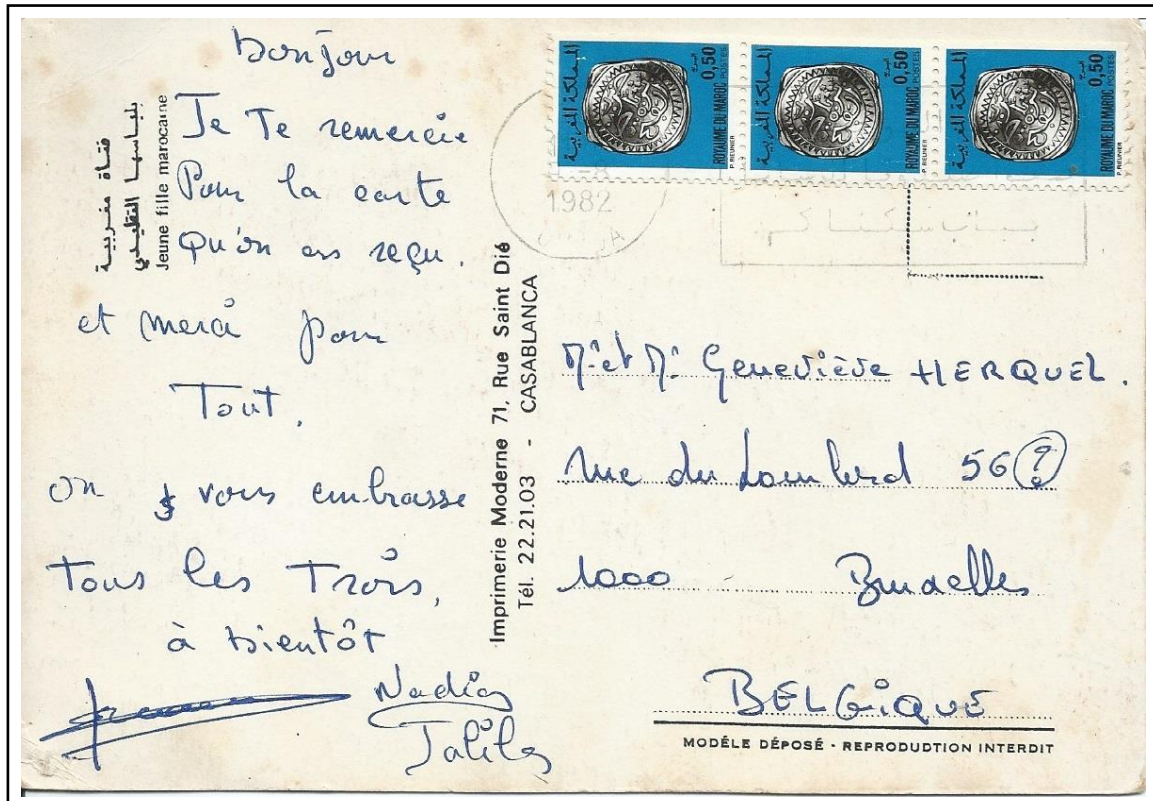 bonjour
Je Te remercie
Pour la carte
Qu'on as reçu.
et merci pour
Tout.
on vous embrasse
Tous les Trois,
à bientôt
Nadia
فتاة مغربية
بلباسها التقليدي
Jeune fille marocaine
Imprimerie Moderne 71, Rue Saint Dié
Tél. 22.21.03 - CASABLANCA
المملكة المغربية
0,50
POSTES
ROYAUME DU MAROC
P. REUNIER
المملكة المغربية
0,50
POSTES
ROYAUME DU MAROC
P. REUNIER
المملكة المغربية
0,50
POSTES
ROYAUME DU MAROC
P. REUNIER
-8
1982
Mr et Mr Geneviève HERQUEL.
rue du Lombard 56 ?
1000 Bruxelles
BELGiQUE
MODÈLE DÉPOSÉ - REPRODUDTION INTERDIT